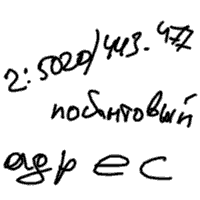 2:5020/443.477
побитовый
адрес